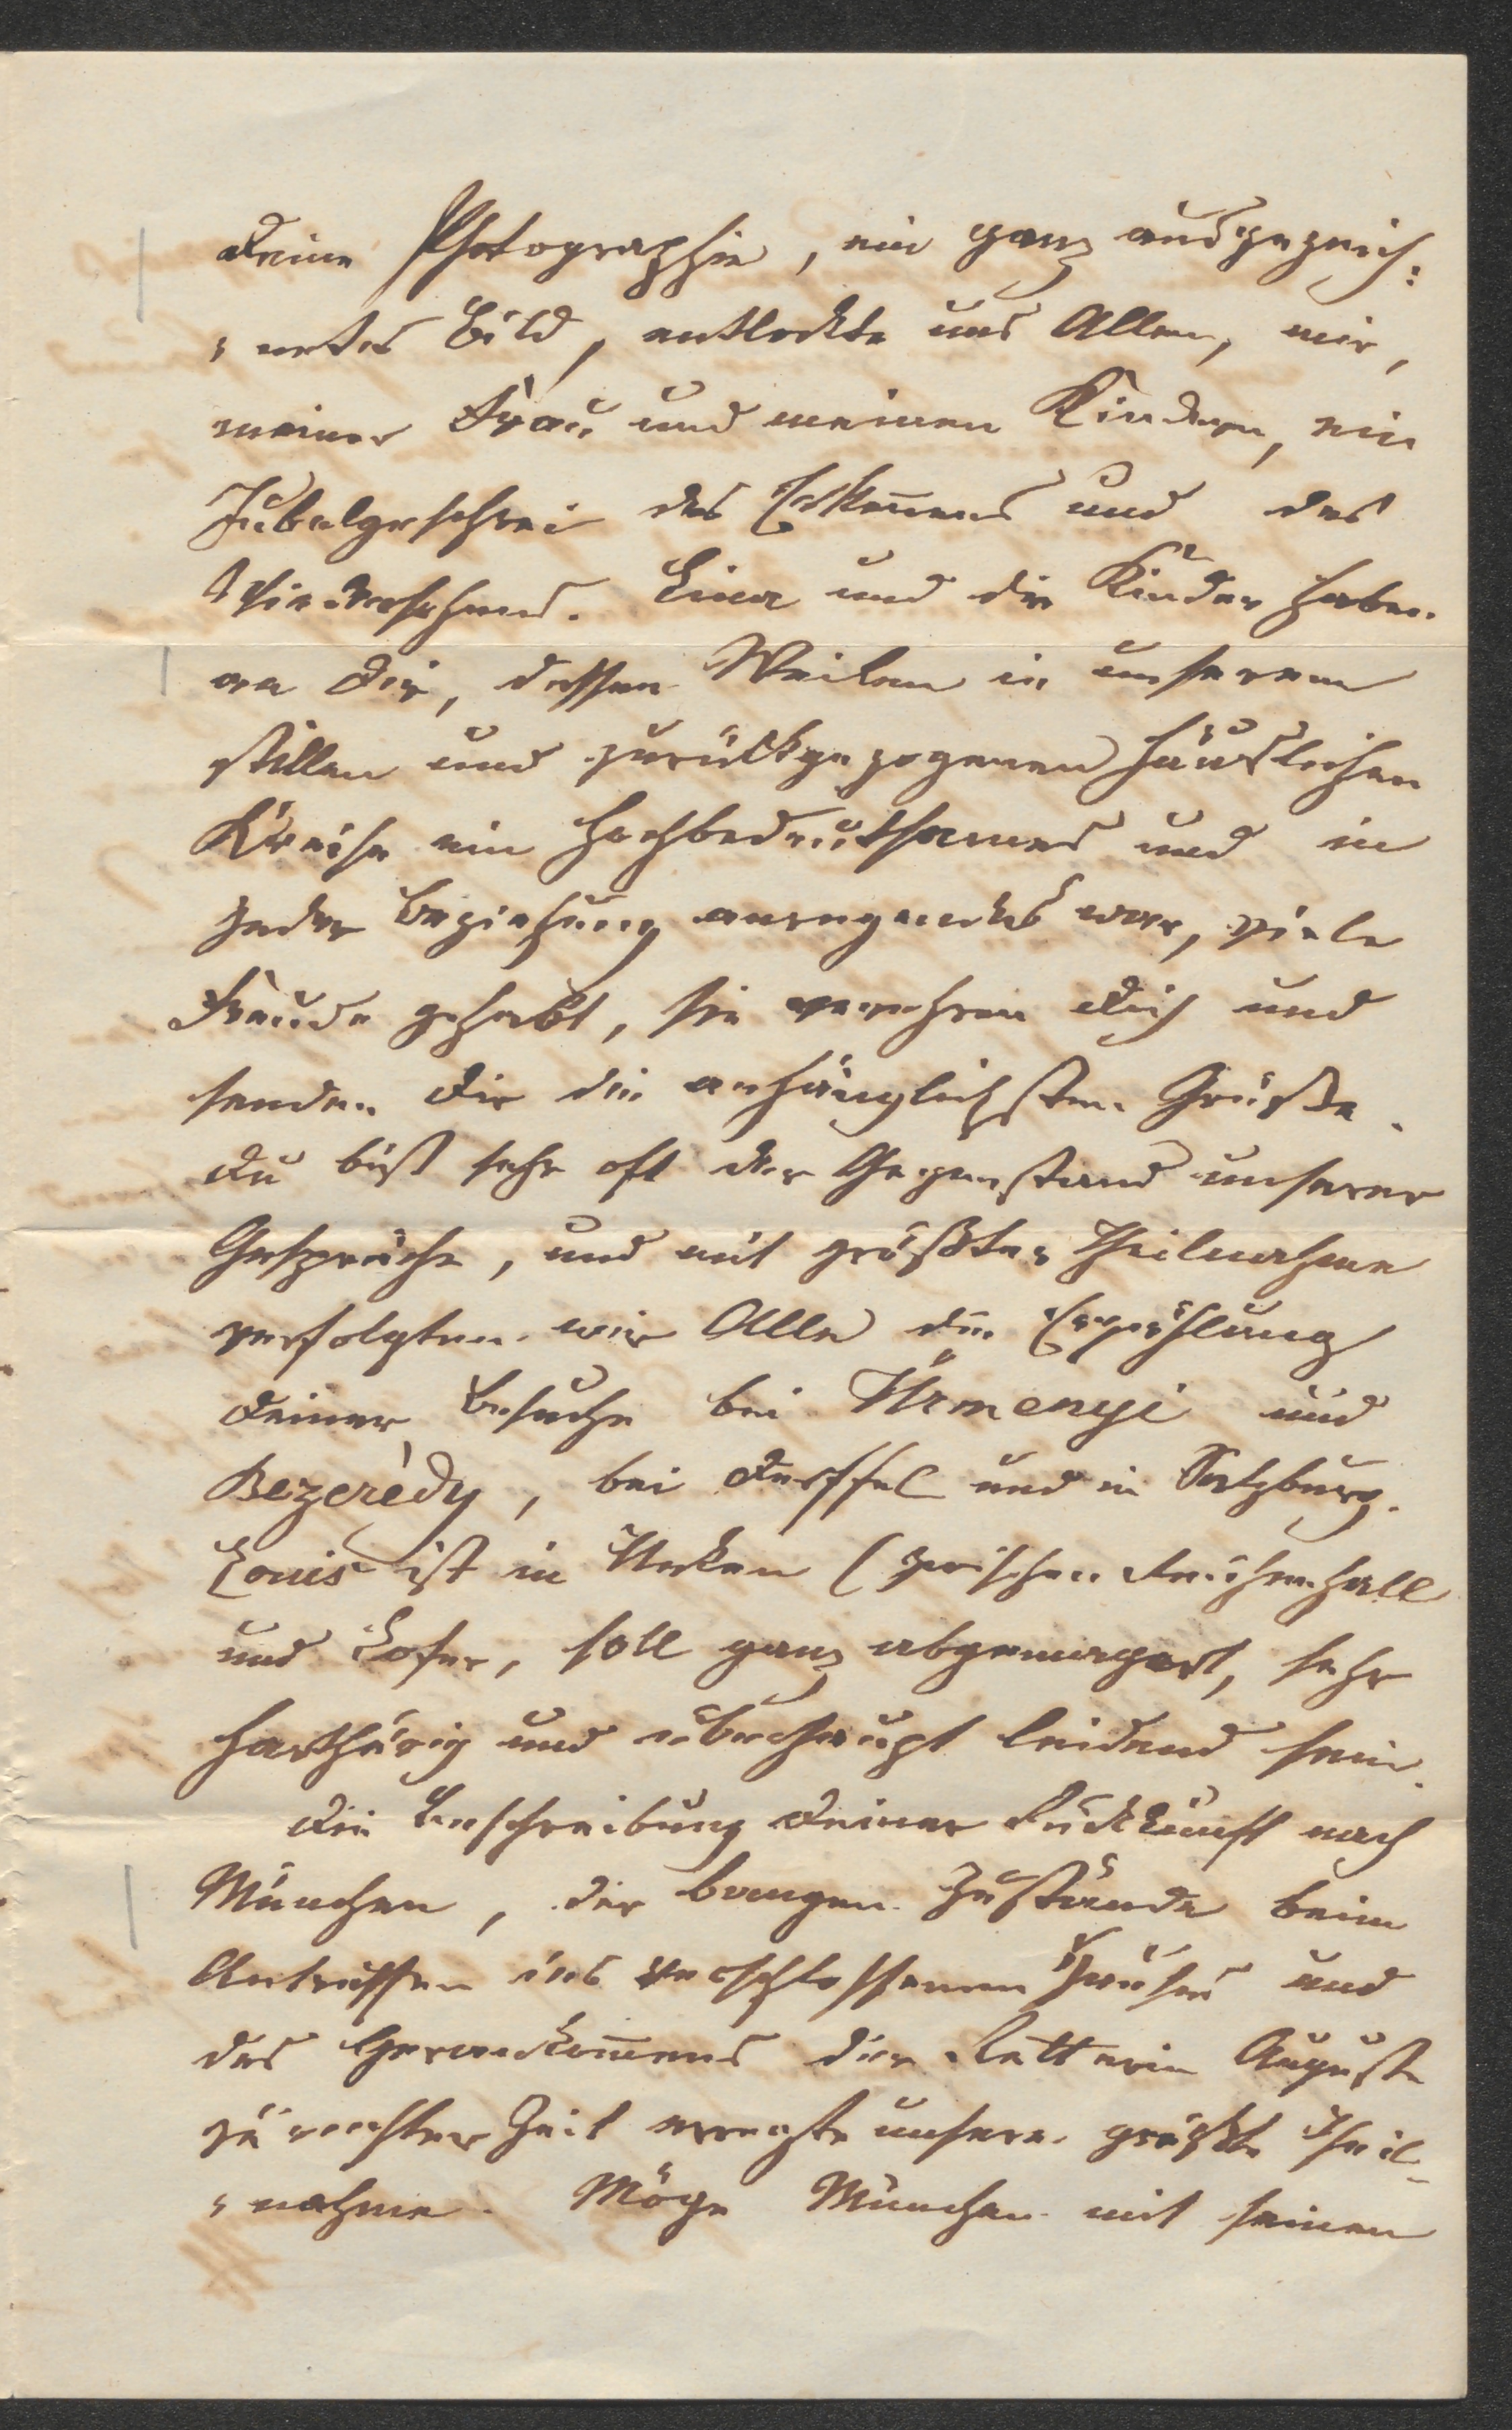 Deine Photographie, ein ganz ausgezeich:
: netes Bild, entlockte uns Allen, mir,
meiner Frau und meinen Kindern, ein
Jubelgeschrei des Erkeñens und des
Wiedersehens. Lina und die Kinder haben
an Dir, dessen Weilen in unserem
stillen und zurückgezogenen häuslichen
Kreise ein hochbedeutsames und in
jeder Beziehung anregendes war, viele
Freude gehabt, sie verehren Dich und
senden Dir die anhänglichsten Grüße.
Du bist sehr oft der Gegenstand unserer
Gespräche, und mit größter Theilnahme
verfolgten wir Alle die Erzählung
Deiner Besuche bei Ürmenyi und
Bezerèdy, bei Derffel und in Salzburg.
Louis ist in Unken (zwischen Reichenhall
und Lofer, soll ganz abgemagert, sehr
harthörig und überhaupt leidend sein.
Die Beschreibung Deiner Rückkunft nach
München, der bangen Zustände beim
Antreffen des verschlossenen Hauses und
des Herankom̄ens der Retterin Auguste
zu rechter Zeit erregte unsere größte Theil-
: nahme. Möge München mit seinen